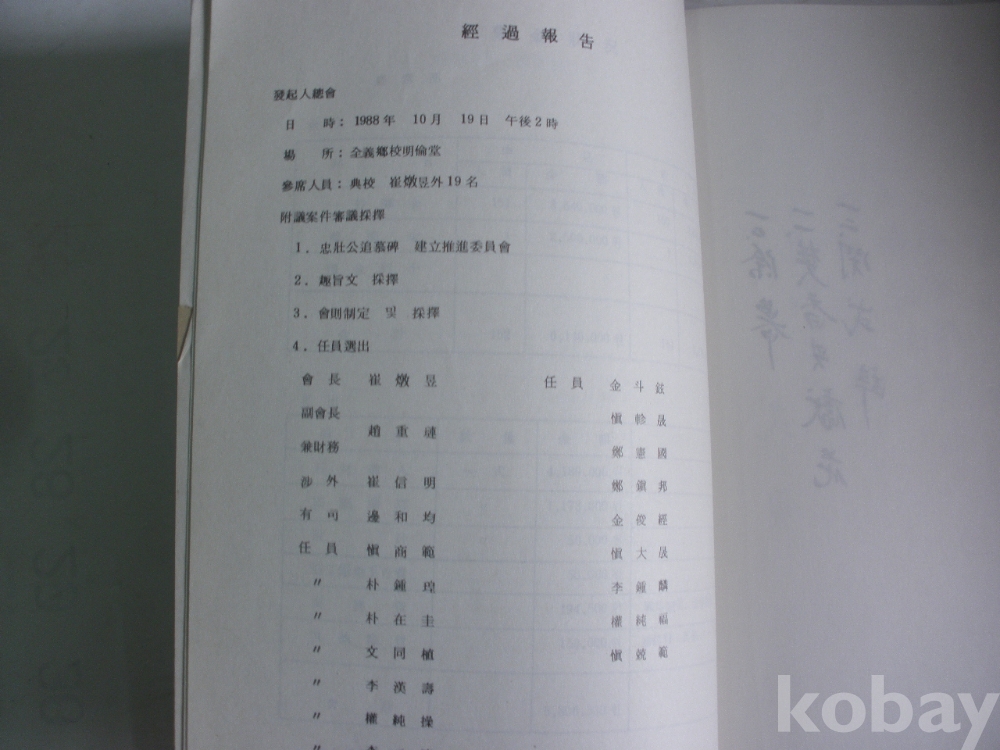 經過報告
發起人總會
日 時: 1988年 10月 19日 午後2時
場 所: 全義鄕校明倫堂
參席人員: 典校 崔燉昱外19名
附議案件審議採擇
1. 忠壯公追慕碑 建立推進委員會
2. 趣旨文 採擇
3. 會則制定 및 採擇
4. 任員選出
會長 崔燉昱
副會長
趙重
兼財務
涉外 崔信明
有司 邊和均
任員 愼商範
〃 朴鍾瑝
〃 朴在圭
〃 文同植
〃 李漢壽
〃 權純操
〃
任員 金斗鉉
愼 晟
鄭憲國
鄭鎭邦
金俊經
愼大晟
李鍾麟
權純福
愼兢範
kobay